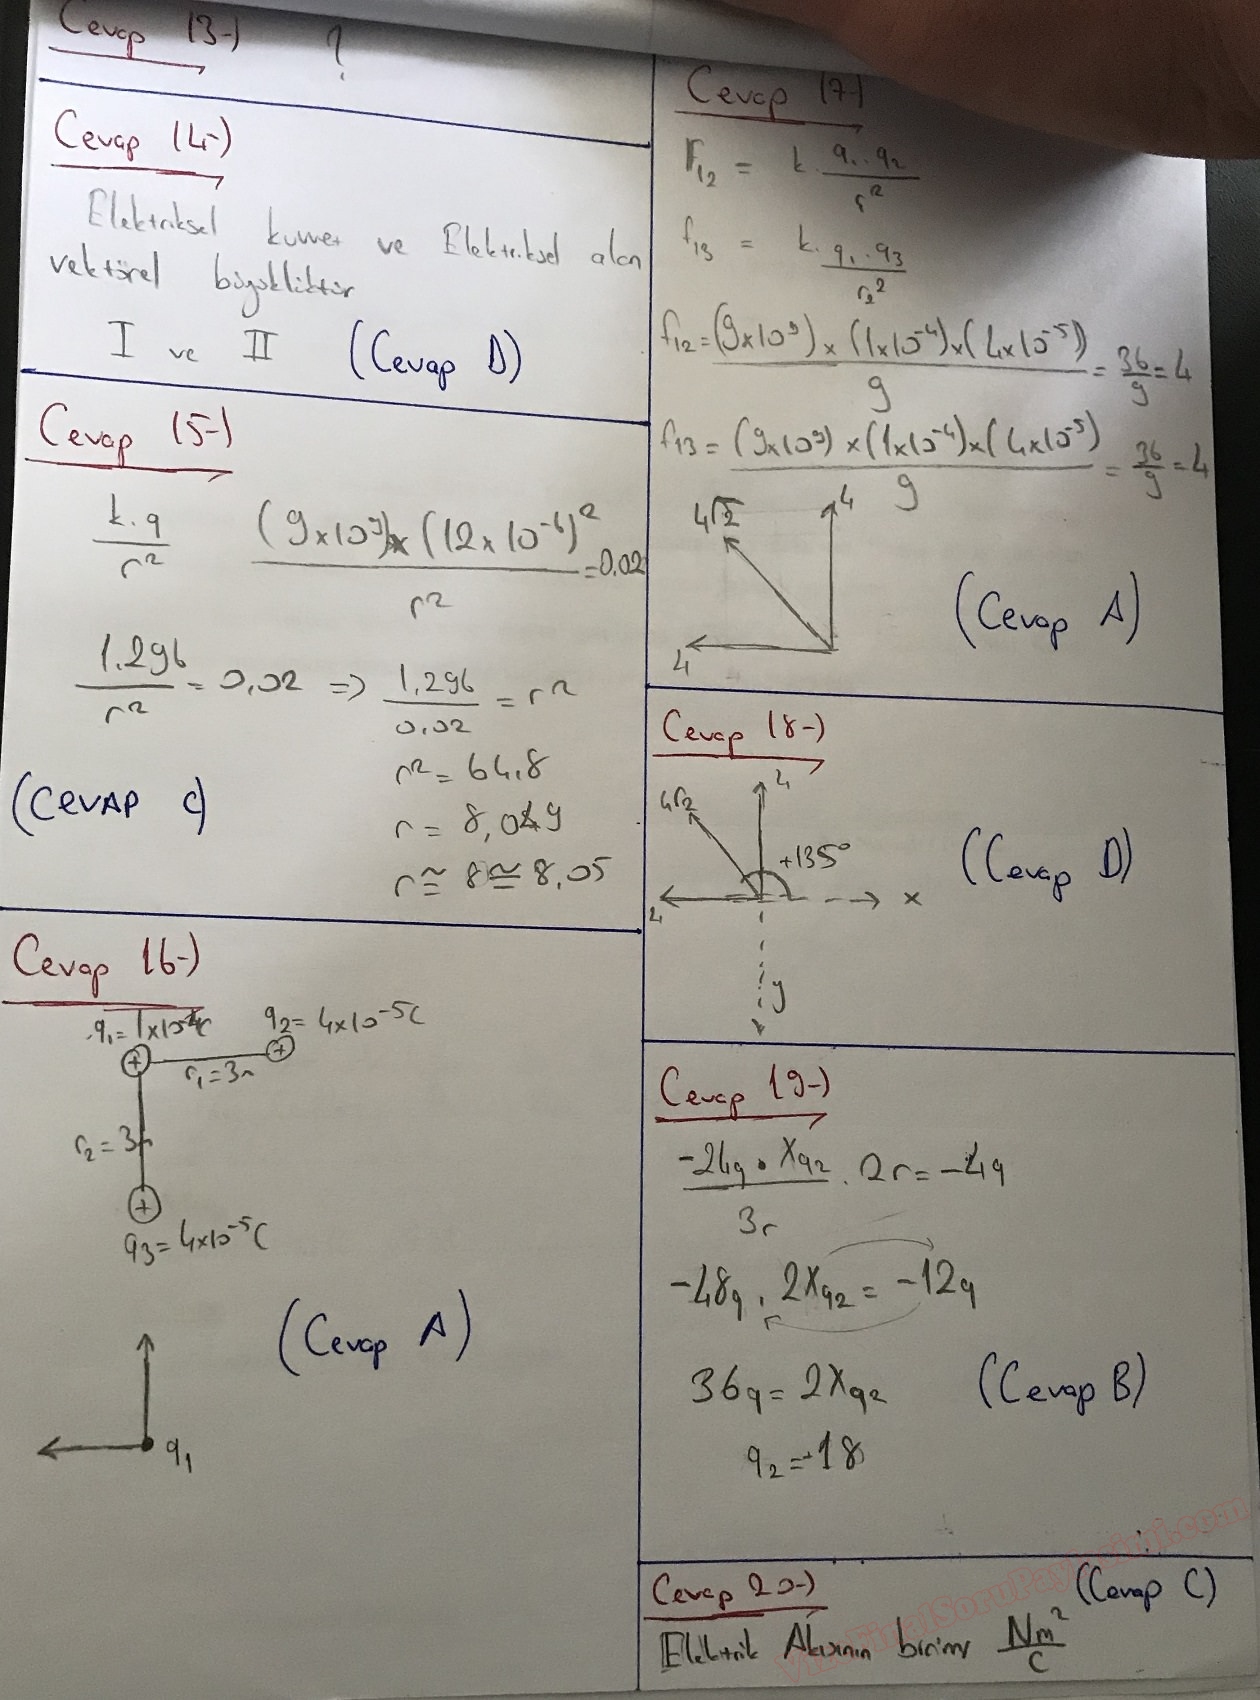 Cevap 13-) ?
Cevap 14-)
Elektriksel kuvvet ve Elektriksel alan
vektörel büyüklüktür
I ve II (Cevap D)
Cevap 15-)
k.q / r² (9x10⁹)x(12x10⁻⁶)² / r² = 0.02
1.296 / r² = 0,02 => 1,296 / 0,02 = r²
r² = 64,8
r = 8,049
r ≅ 8 ≅ 8,05
(CEVAP C)
Cevap 16-)
q₁=1x10⁻⁴C q₂= 4x10⁻⁵C
+ +
r₁=3m
r₂=3m
+
q₃=4x10⁻⁵C
(Cevap A)
q₁
Cevap 17-)
F₁₂ = k.q₁.q₂ / r²
f₁₃ = k.q₁.q₃ / r₂²
f₁₂=(9x10⁹)x(1x10⁻⁴)x(4x10⁻⁵) / 9 = 36/9 = 4
f₁₃=(9x10⁹)x(1x10⁻⁴)x(4x10⁻⁵) / 9 = 36/9 = 4
4√2 4
4
(Cevap A)
Cevap 18-)
4√2 4
+135°
4 x
y
(Cevap D)
Cevap 19-)
-24q.Xq2 / 3r . 2r=-4q
-48q.2Xq2=-12q
36q=2Xq2
(Cevap B)
q₂=-18
Cevap 20-) (Cevap C)
Elektrik Akısının birimi Nm²/C
VizeFinalSoruPaylasimi.com